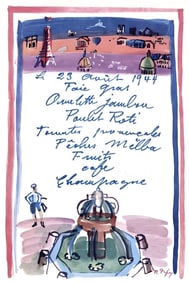 le 23 août 1944
Foie gras
Omelette jambon
Poulet Roti
Tomates provencales
Pêches Melba
Fruits
café
Champagne